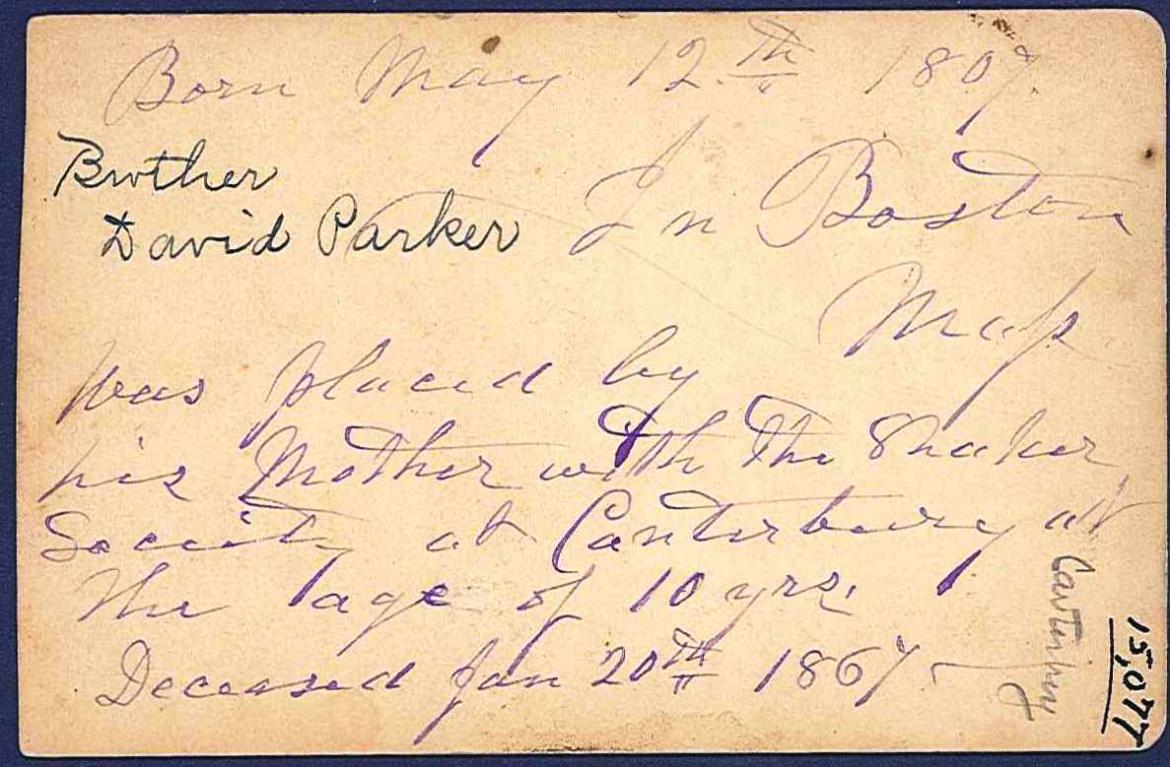 Born May 12th 1807.
Brother
David Parker
In Boston
Mass
was placed by
his Mother with the Shaker
Society at Canterbury at
the age of 10 yrs.
Deceased Jan 20th 1867.
Canterbury
15,077